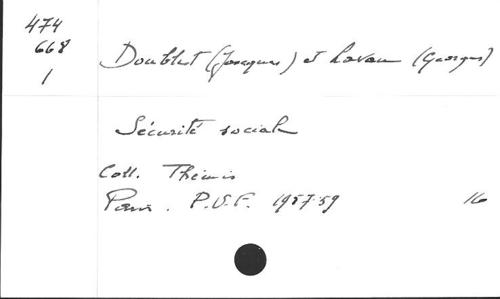 474
668
1
Doublet (Jacques) et Lavau (Georges)
Sécurité sociale
Coll. Thémis
Paris. P.U.F. 1957-59 16